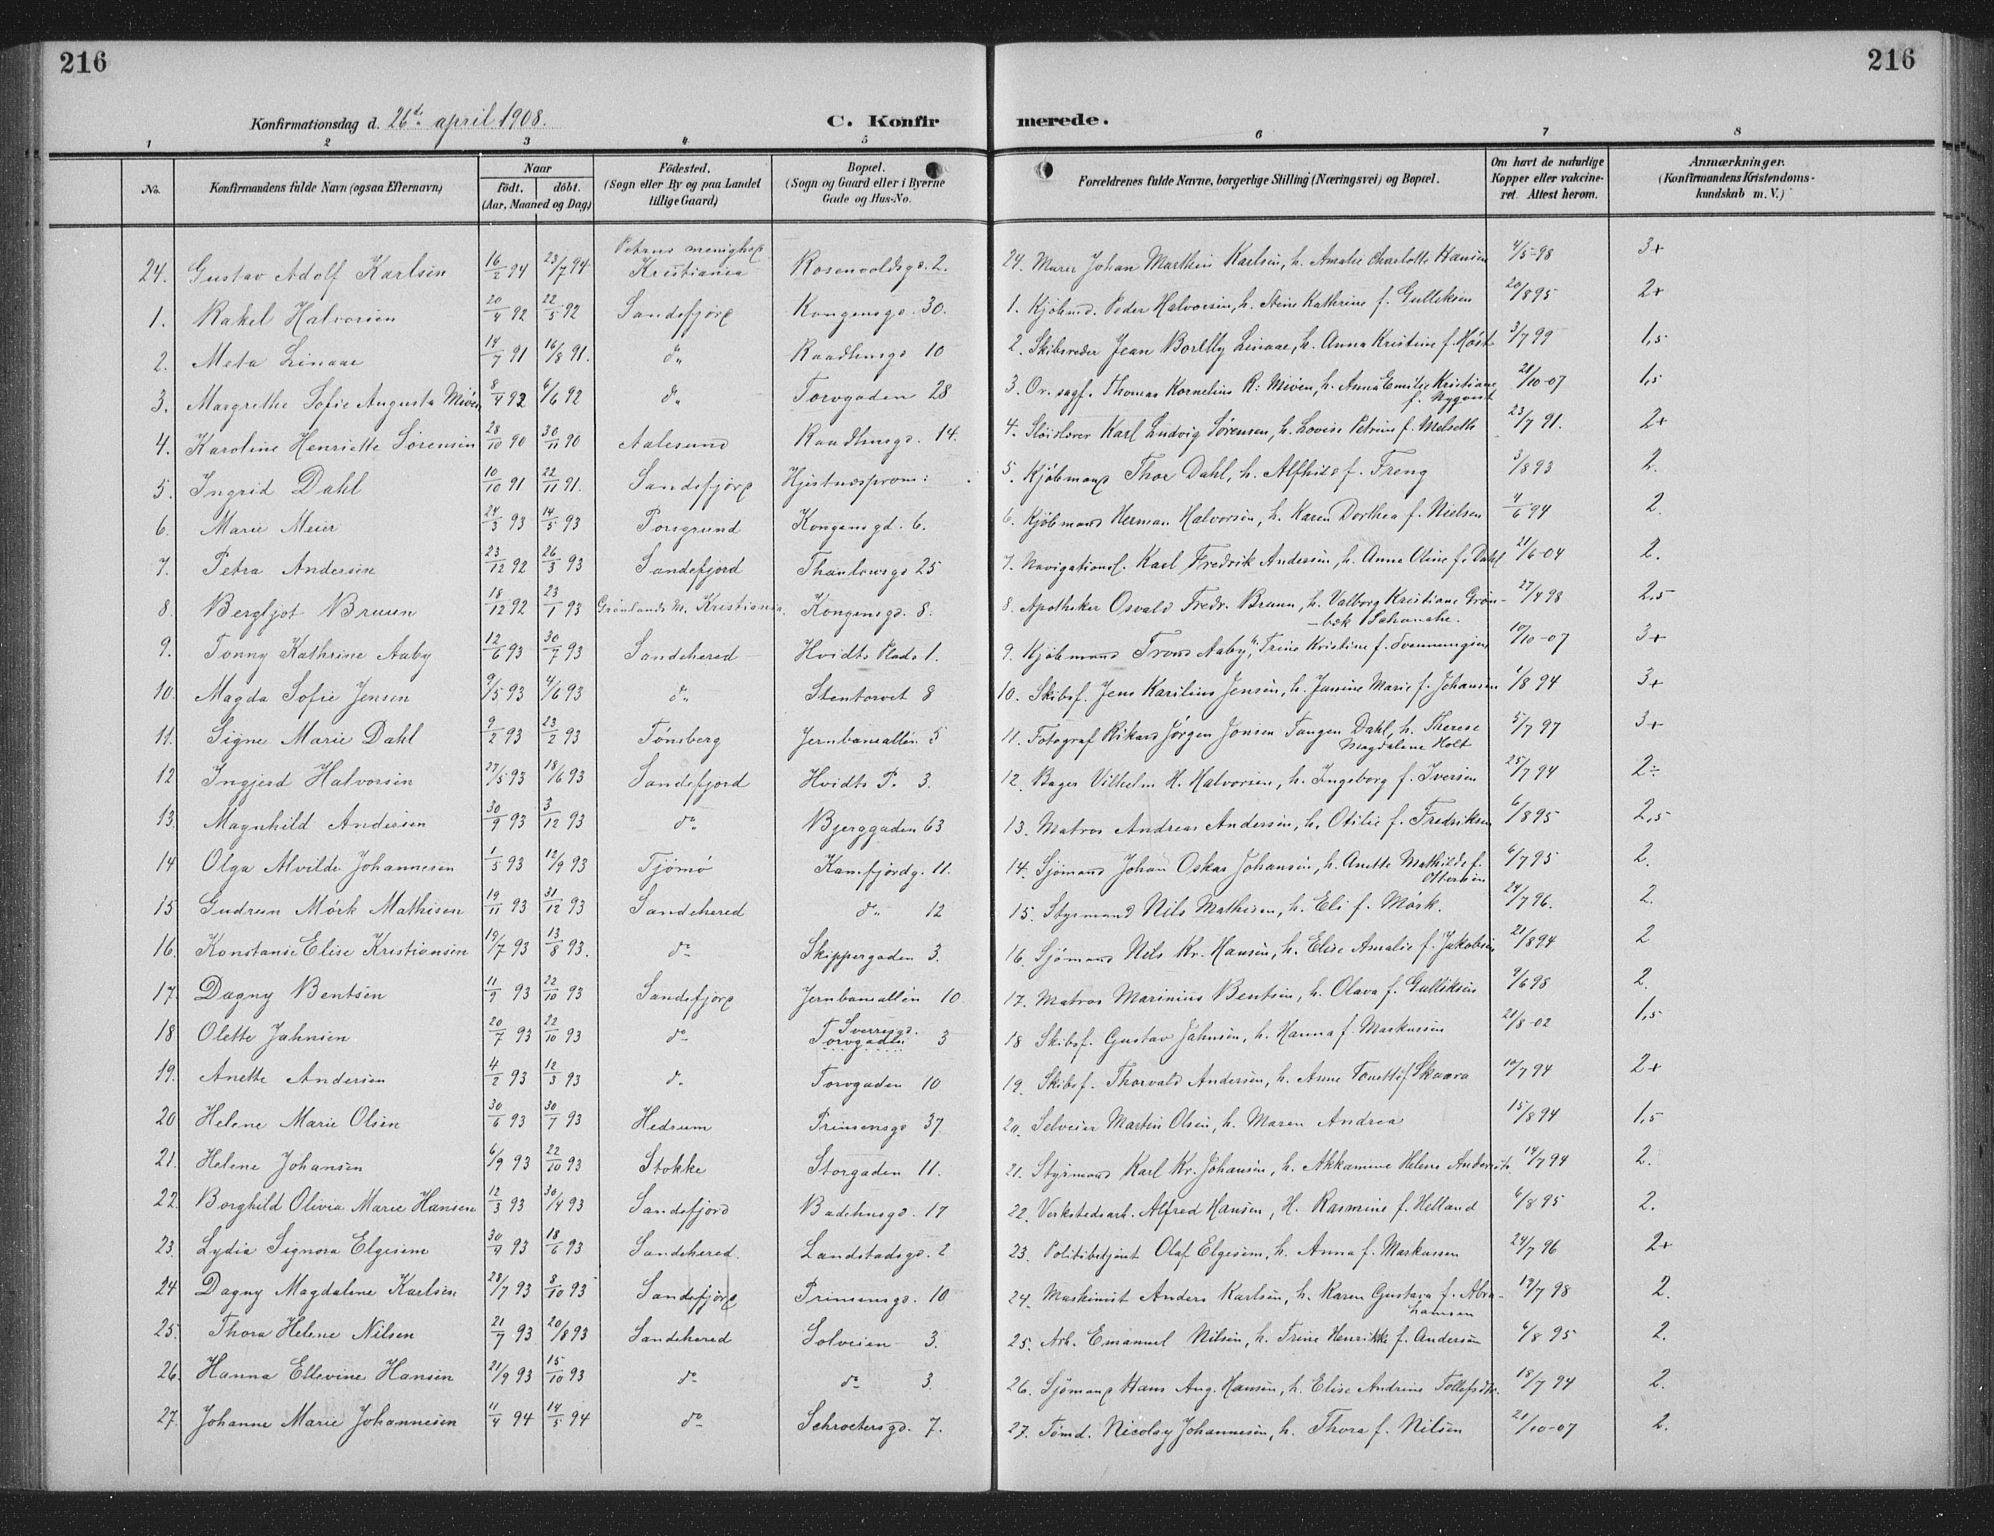 216
216
Konfirmationsdag d. 26de april 1908.
C. Konfir
merede.
1 2 3 4 5 6 7 8
No. Konfirmandens fulde Navn (ogsaa Efternavn)
Naar
födt. döbt.
(Aar, Maaned og Dag)
Födested.
(Sogn eller By og paa Landet
tillige Gaard)
Bopæl.
(Sogn og Gaard eller i Byerne
Gade og Hus-No.
Forældrenes fulde Navne, borgerlige Stilling (Næringsvei) og Bopæl.
Om havt de naturlige
Kopper eller vakcine-
ret. Attest herom.
Anmærkninger.
(Konfirmandens Kristendoms-
kundskab m. V.)
24. Gustav Adolf Karlsen 16/2 94 23/7 94 Petrus menighed Kristiania Rosenvoldsgd. 2. 24. Murer Johan Marthin Karlsen, h. Amalie Charlotte Hansen 4/5-98 3+
1. Rakel Halvorsen 20/4 92 22/5 92 Sandefjord Kongensgd. 30. 1. Kjøbmd. Peder Halvorsen, h. Stine Kathrine f. Gulliksen 20/8 95 2+
2. Meta Linaae 14/7 91 16/8 91. do Raadhusgd 10 2. Skibsreder Jean Linaae, h. Anna Kristine f. Høst 3/7 99 1,5
3. Margrethe Sofie Augusta Miøen 8/4 92 6/6 92 do Torvgaden 28 3. Ov. sagf. Thomas Kornelius R. Miøen, h. Anna Emilie Kristiane f. Nyqvist 21/10-07 1,5
4. Karoline Henriette Sørensen 28/10 90 30/11 90 Aalesund Raadhusgd. 14. 4. Sløidlærer Karl Ludvig Sørensen, h. Lovise Petrine f. Melseth 23/7 91. 2+
5. Ingrid Dahl 10/10 91 22/11 91. Sandefjord Hjertnæsprom: 5. Kjøbmand Thor Dahl, h. Alfhild f. Freng 3/8 93 2.
6. Marie Meier 24/3 93 14/5 93 Porsgrund Kongensgd. 6. 6. Kjøbmand Herman Halvorsen, h. Karen Dorthea f. Nielsen 4/6 94 2.
7. Petra Andersen 23/12 92 26/3 93 Sandefjord Thaulowsgd 25 7. Navigationsl. Karl Fredrik Andersen, h. Anne Oline f. Dahl 21/6-04 2.
8. Bergljot Bruun 18/12 92 23/1 93 Grønlands M. Kristiania. Kongensgd. 8. 8. Apotheker Osvald Fredr. Bruun, h. Valborg Kristiane Grøn-bek Schanche. 27/4 98 2,5
9. Tonny Kathrine Aaby 12/6 93 30/7 93 Sandehered Hvidts Plads 1. 9. Kjøbmand Trond Aaby, h. Trine Kristine f. Svennungsen 10/10-07 3+
10. Magda Sofie Jensen 9/5 93 4/6 93 do Stentorvet 8 10. Skibsf. Jens Karilius Jensen, h. Janine Marie f. Johansen 1/8 94 3+
11. Signe Marie Dahl 9/2 93 23/2 93 Tønsberg Jernbanealléen 5 11. Fotograf Rikard Jørgen Jonsen Tangen Dahl, h. Therese Magdalene Holt 5/7 97 3+
12 Ingjerd Halvorsen 27/5 93 18/6 93 Sandefjord Hvidts P. 3. 12. Bager Vilhelm H. Halvorsen, h. Ingeborg f. Iversen 25/7 94 2÷
13. Magnhild Andersen 30/9 93 3/12 93 do Bjerggaden 63 13. Matros Andreas Andersen, h. Otilie f. Fredriksen 6/8 95 2,5
14 Olga Alvilde Johannesen 1/5 93 12/9 93 Tjømø Kamfjordg. 11. 14. Sjømand Johan Oskar Johansen, h. Anette Mathilde f. Ottersen 6/7 95 2.
15 Gudrun Mørk Mathisen 19/11 93 31/12 93 Sandehered do 12 15. Styrmand Nils Mathisen, h. Eli f. Mørk. 24/7 96. 2.
16. Konstanse Elise Kristiansen 19/7 93 13/8 93. do Skippergaden 3. 16. Sjømand Nils Kr. Hansen, h. Elise Amalie f. Jakobsen 21/8 94 2
17. Dagny Bentsen 11/9 93 22/10 93 Sandefjord Jernbanealléen 10 17. Matros Marinius Bentsen, h. Olava f. Gulliksen 9/6 98 2.
18 Olette Jahnsen 20/7 93 22/10 93 do Sverresgd. Torvgaden 3 18 Skibsf. Gustav Jahnsen, h. Hanna f. Markussen 21/8-02 1,5
19. Anette Andersen 4/2 93 12/3 93 do Torvgaden 10 19. Skibsf. Thorvald Andersen, h. Anne Tonette f. Skaara 10/7 94 2+
20 Helene Marie Olsen 30/6 93 30/7 93 Hedrum Prinsensgd 37. 20. Selveier Martin Olsen, h. Maren Andrea 15/8 94 1,5
21. Helene Johansen 6/9 93 22/10 93 Stokke Storgaden 11. 21. Styrmand Karl Kr. Johansen, h. Akkamine Helene Andersdt. 14/7 94 2.
22. Borghild Olivia Marie Hansen 12/3 93 30/4 93 Sandefjord Badehusgd. 17 22. Verkstedsarb. Alfred Hansen, H. Rasmine f. Helland 6/8 95 2.
23. Lydia Signora Elgesem 30/4 93 18/6 93 Sandehered. Landstadsgd. 2 23. Politibetjent Olaf Elgesem, h. Anna f. Markussen 24/7 96 2+
24 Dagny Magdalene Karlsen 28/7 93 8/10 93 Sandefjord Prinsensgd. 10 24. Maskinist Anders Karlsen, h. Karen Gustava f. Abra-hamsen 19/7 98 2.
25. Thora Helene Nilsen 21/7 93 20/8 93 Sandehered Solveien 3. 25. Arb. Emanuel Nilsen, h. Trine Henrikke f. Andersen 6/8 95 2.
26. Hanna Ellevine Hansen 21/9 93 15/10 93 do do 3. 26. Sjømand Hans Aug. Hansen, h. Elise Andrine Tollefsdtr. 18/7 94 2.
27. Johanne Marie Johannesen 11/4 94 14/5 94 do Schroetersgd. 7. 27. Tømd. Nicolay Johannesen, h. Thora f. Nilsen 21/10-07 2.